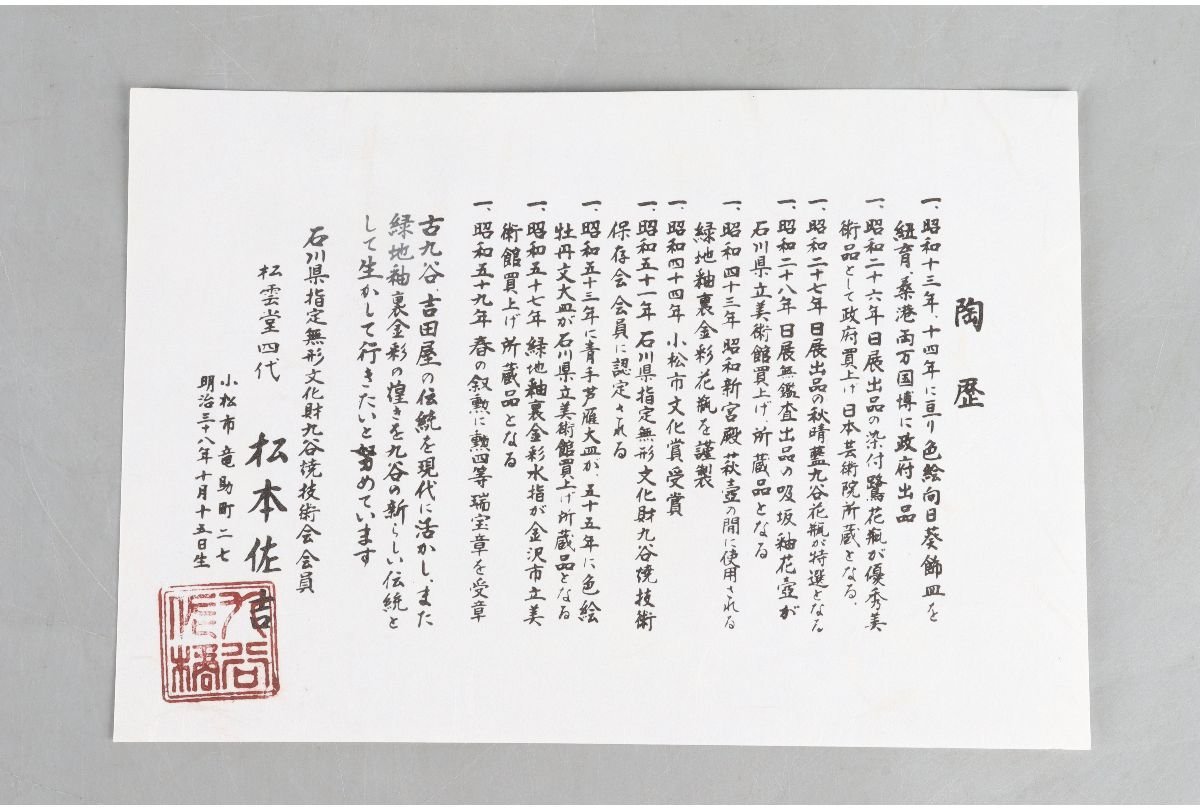 陶歴
一、昭和十三年、十四年に亘り色絵向日葵飾皿を
紐育、桑港両万国博に政府出品
一、昭和二十六年日展出品の染付鷺花瓶が優秀美
術品として政府買上げ日本芸術院所蔵となる、
一、昭和二十七年日展出品の秋晴藍九谷花瓶が特選となる
一、昭和二十八年日展無鑑査出品の吸坂釉花壺が
石川県立美術館買上げ、所蔵品となる
一、昭和四十三年昭和新宮殿萩壺の間に使用される
緑地釉裏金彩花瓶を謹製
一、昭和四十四年小松市文化賞受賞
一、昭和五十一年石川県指定無形文化財九谷焼技術
保存会会員に認定される
一、昭和五十三年に青手芦雁大皿が、五十五年に色絵
牡丹文大皿が石川県立美術館買上げ所蔵品となる
一、昭和五十七年緑地釉裏金彩水指が金沢市立美
術館買上げ所蔵品となる
一、昭和五十九年春の叙勲に勲四等瑞宝章を受章
古九谷、吉田屋の伝統を現代に活かし、また
緑地釉裏金彩の煌きを九谷の新らしい伝統と
して生かして行きたいと努めています
石川県指定無形文化財九谷焼技術会会員
松雲堂四代 松本佐吉
小松市竜助町二七
明治三十八年十月十五日生
九谷